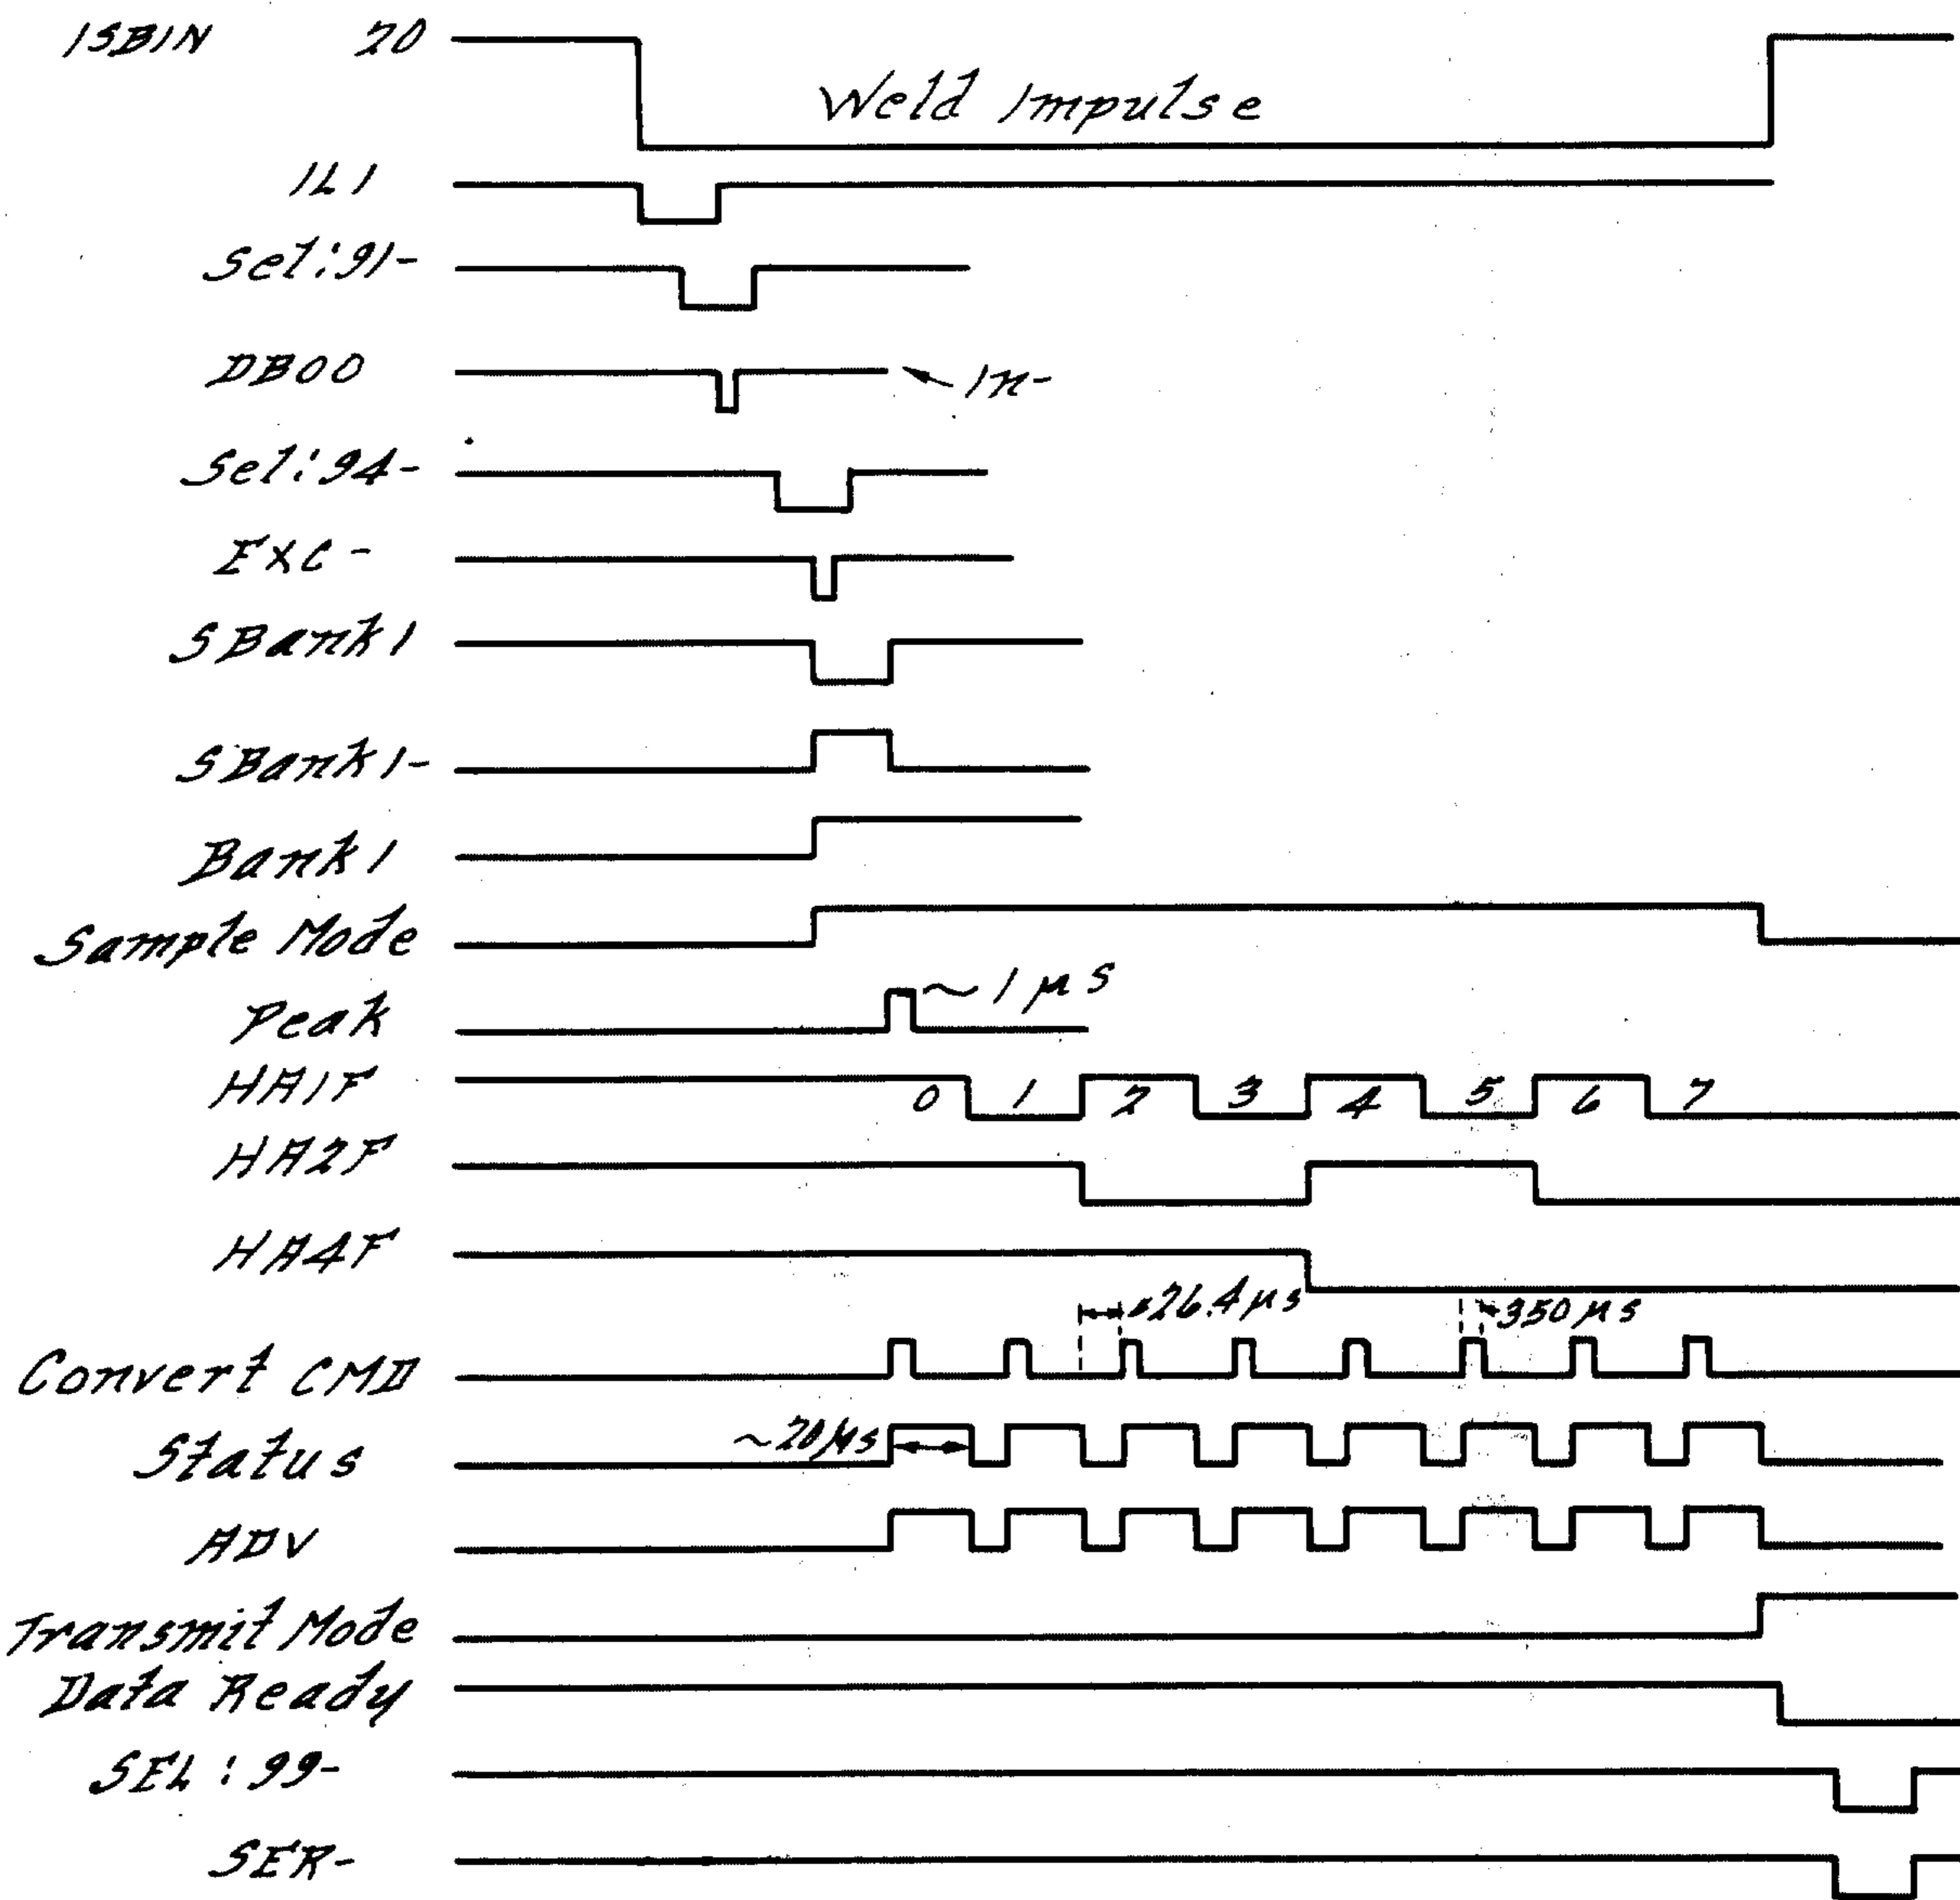 ISBIN 20
Weld Impulse
IL1
Sel:91-
DB00
In-
Sel:94-
EXC-
SBank1
SBank1-
Bank1
Sample Mode
Peak
~1 μs
HA1F
0 1 2 3 4 5 6 7
HA2F
HA4F
26.4 μs
350 μs
Convert CMD
~20 μs
Status
ADV
Transmit Mode
Data Ready
SEL:99-
SER-